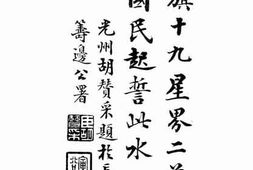 旗十九星界二
國民起誓此水
光州胡贊采題於
籌邊公署